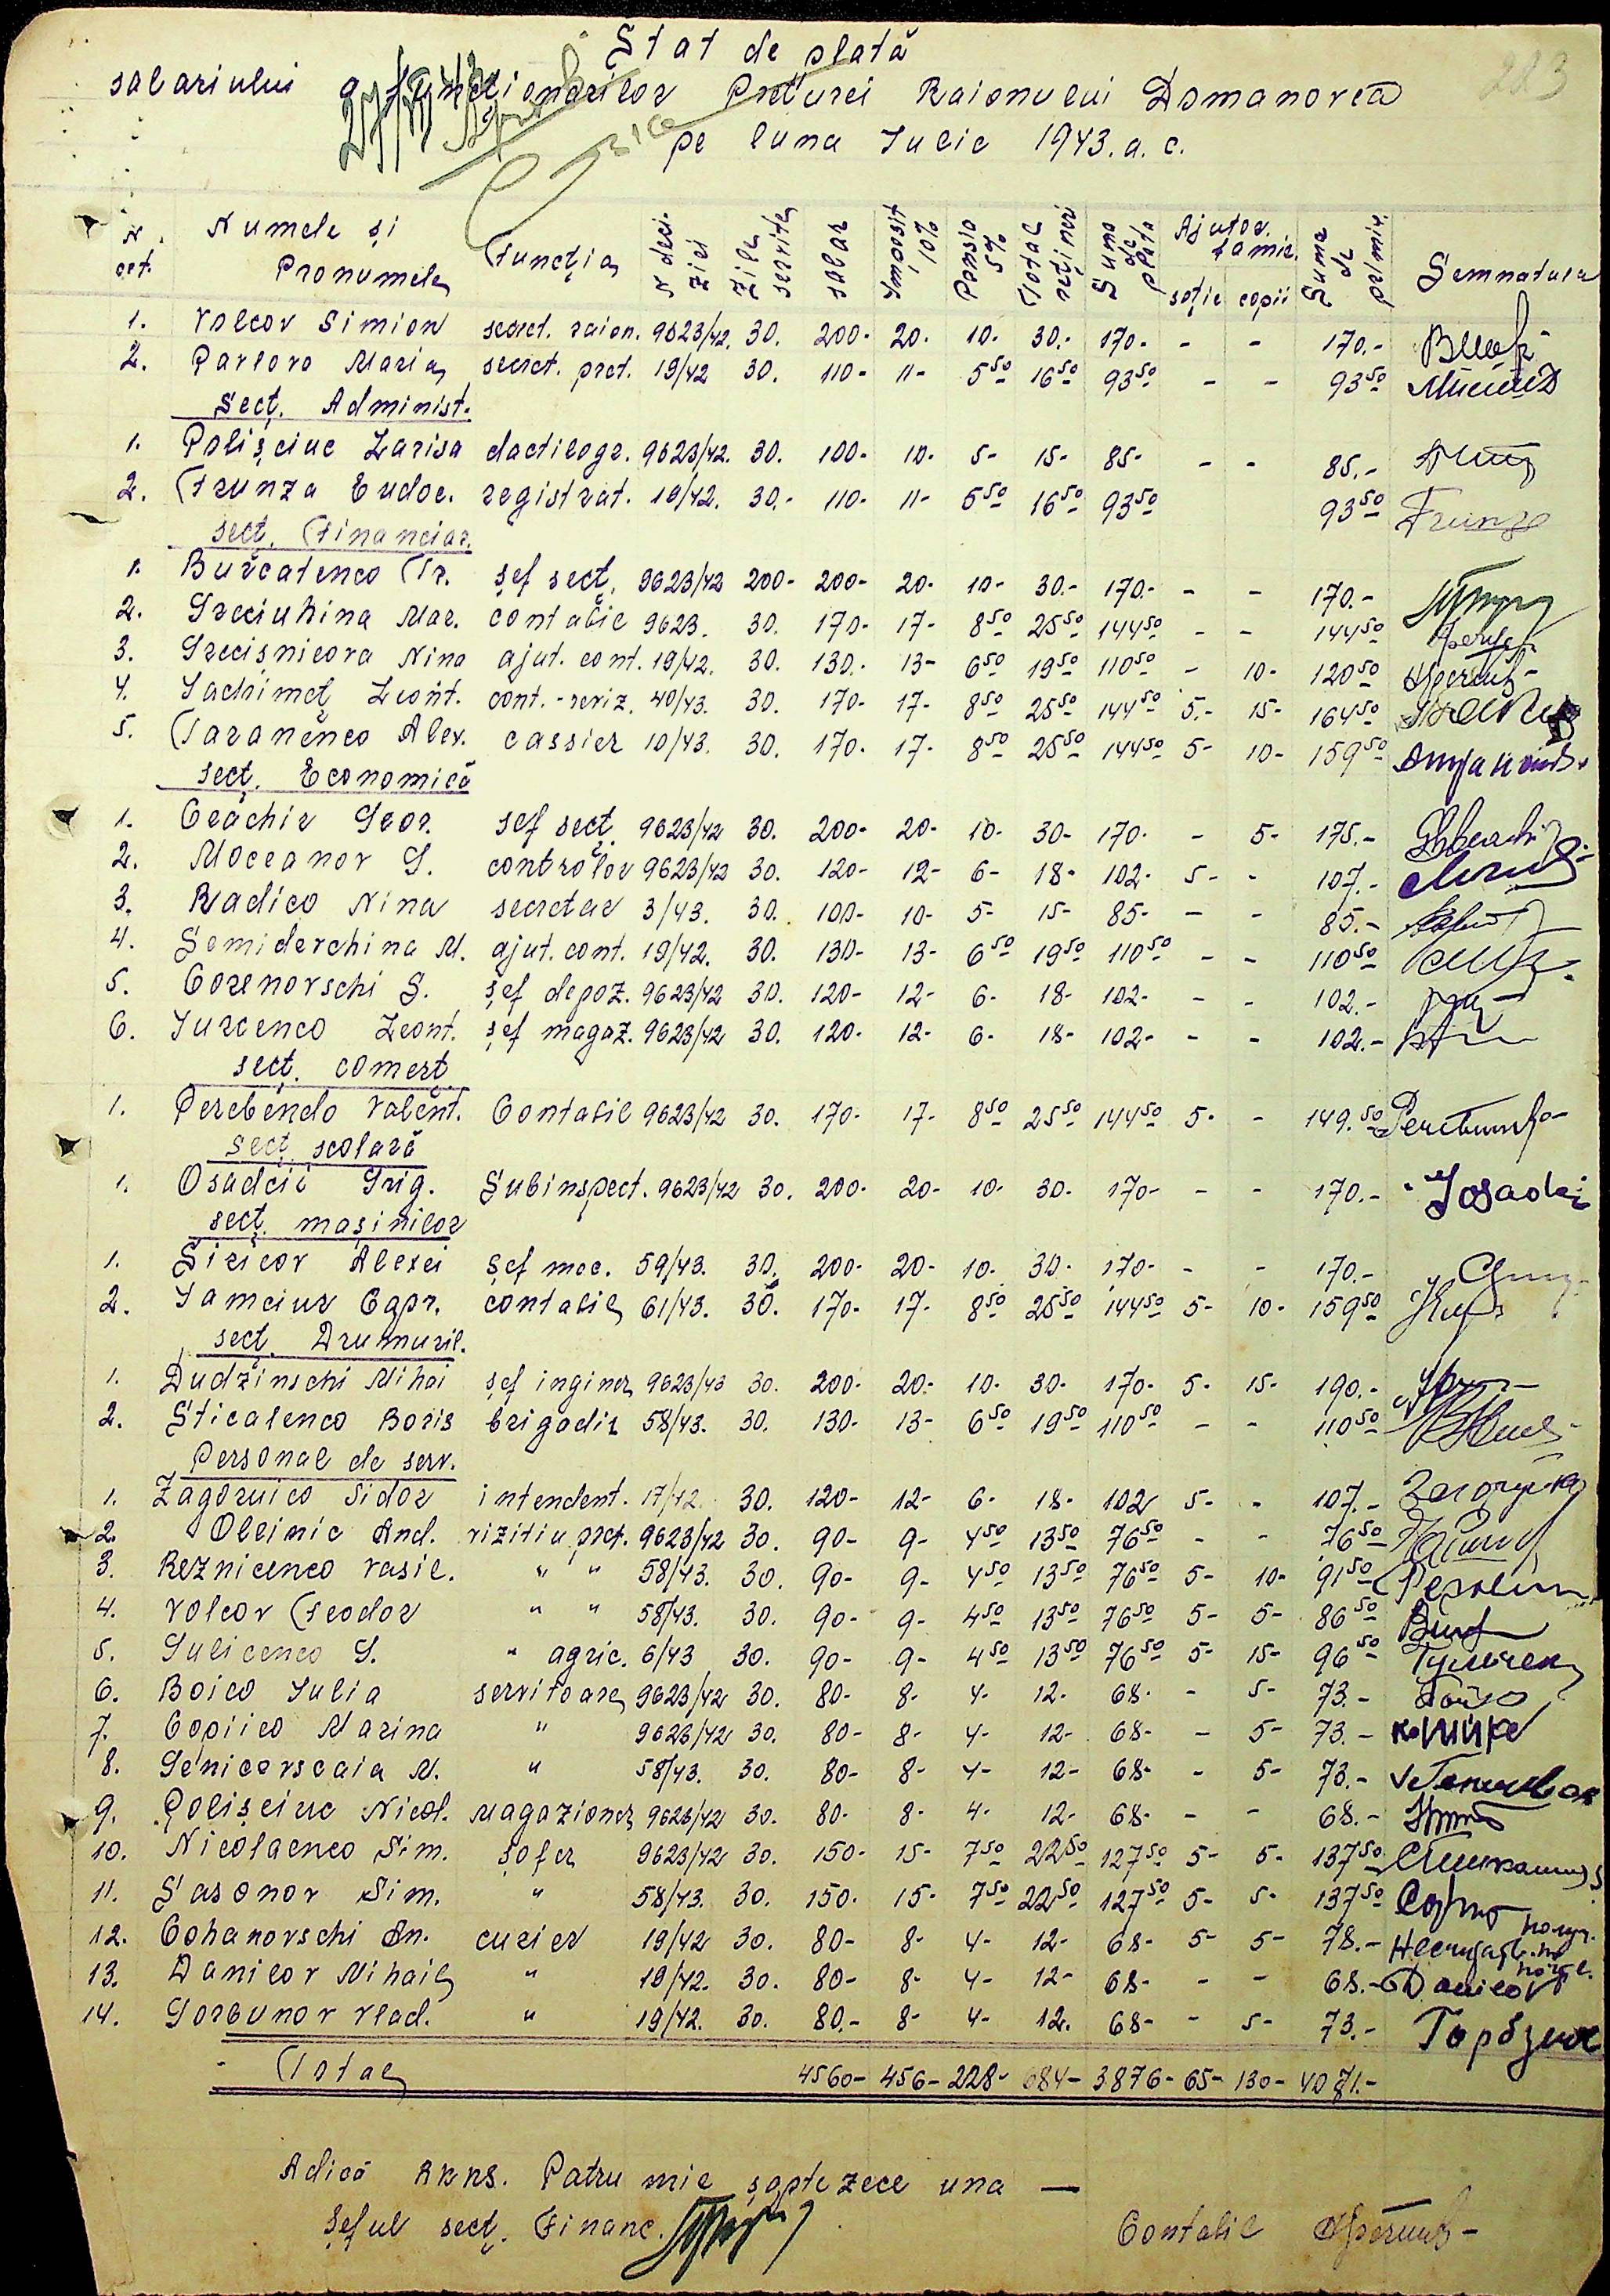 Stat de plată
salariului a funcționarilor Preturei Raionului Domanovca
pe luna Iulie 1943. a. c.
223
N. crt. Numele și Pronumele Funcția N deciziei Zile servite salar Impozit 10% Pensia 5% Total rețineri Suma de plata Ajutor. famil. soție copii Suma de primir. Semnatura
1. Volcov Simion secret. raion. 9623/42. 30. 200- 20- 10- 30.- 170- - - 170.-
2. Pavlova Maria secret. pret. 19/42 30. 110- 11- 5 50 16 50 93 50 - - 93 50
Secț. Administ.
1. Polișciuc Larisa dactilogr. 9623/42. 30. 100- 10- 5- 15- 85- - - 85.-
2. Frunza Eudoc. registrat. 19/42. 30.- 110- 11- 5 50 16 50 93 50 93 50
secț. Financiar.
1. Burcatenco Tr. șef secț. 9623/42 200- 200- 20- 10- 30.- 170.- - - 170.-
2. Greciuhina Mar. contabil 9623. 30. 170- 17- 8 50 25 50 144 50 - - 144 50
3. Grecișnicova Nina ajut. cont. 19/42. 30. 130. 13- 6 50 19 50 110 50 - 10- 120 50
4. Iachimeț Leont. cont.-reviz. 40/43. 30. 170- 17- 8 50 25 50 144 50 5.- 15- 164 50
5. Taranenco Alex. cassier 10/43. 30. 170. 17. 8 50 25 50 144 50 5- 10- 159 50
secț. Economică
1. Ceachir Geor. șef secț. 9623/42 30. 200- 20- 10- 30- 170- - 5- 175.-
2. Moceanov G. controlor 9623/42 30. 120- 12- 6- 18- 102- 5- - 107.-
3. Radico Nina secretar 3/43. 30. 100- 10- 5- 15- 85- - - 85.-
4. Semiderchina M. ajut. cont. 19/42. 30. 130- 13- 6 50 19 50 110 50 - - 110 50
5. Corenovschi S. șef depoz. 9623/42 30. 120- 12- 6- 18- 102- - - 102.-
6. Iurcenco Leont. șef magaz. 9623/42 30. 120- 12- 6- 18- 102- - - 102.-
secț. comerț.
1. Perebendo Valent. Contabil 9623/42 30. 170- 17- 8 50 25 50 144 50 5- - 149. 50
secț. scolară
1. Osadcii Grig. Subinspect. 9623/42 30. 200- 20- 10- 30- 170- - - 170.-
secț. mașinilor
1. Siricov Alexei șef mec. 59/43. 30. 200- 20- 10- 30- 170- - - 170.-
2. Iamciur Capr. contabil 61/43. 30. 170- 17- 8 50 25 50 144 50 5- 10- 159 50
secț. Drumuril.
1. Dudzinschi Mihai șef inginer 9623/43 30. 200- 20- 10- 30- 170- 5- 15- 190.-
2. Sticalenco Boris brigadir 58/43. 30. 130- 13- 6 50 19 50 110 50 - - 110 50
Personal de serv.
1. Zagoruico Sidor intendent. 17/42 30. 120- 12- 6- 18- 102 5- - 107.-
2. Oleinic And. vizitiu pret. 9623/42 30. 90- 9- 4 50 13 50 76 50 - - 76 50
3. Reznicenco Vasil. " " 58/43. 30. 90- 9- 4 50 13 50 76 50 5- 10- 91 50
4. Volcov Feodor " " 58/43. 30. 90- 9- 4 50 13 50 76 50 5- 5- 86 50
5. Gulicenco G. " agric. 6/43 30. 90- 9- 4 50 13 50 76 50 5- 15- 96 50
6. Boico Iulia servitoare 9623/42 30. 80- 8- 4- 12- 68- - 5- 73.-
7. Copiico Marina " 9623/42 30. 80- 8- 4- 12- 68- - 5- 73.-
8. Senicovscaia M. " 58/43. 30. 80- 8- 4- 12- 68- - 5- 73.-
9. Polișciuc Nicol. Magazioner 9623/42 30. 80- 8- 4- 12- 68- - - 68.-
10. Nicolaenco Sim. șofer 9623/42 30. 150- 15- 7 50 22 50 127 50 5- 5- 137 50
11. Sasonov Sim. " 58/43. 30. 150. 15- 7 50 22 50 127 50 5- 5- 137 50
12. Cohanovschi An. curier 19/42 30. 80- 8- 4- 12- 68- 5- 5- 78.-
13. Danilov Mihail " 19/42. 30. 80- 8- 4- 12- 68- - - 68.- Danilov
14. Gorbunov Vlad. " 19/42. 30. 80.- 8- 4- 12. 68- - 5- 73.-
Total 4560- 456- 228- 684- 3876- 65- 130- 4071.-
Adică RKKS. Patru mie șaptezece una —
Șeful secț. Financ.
Contabil